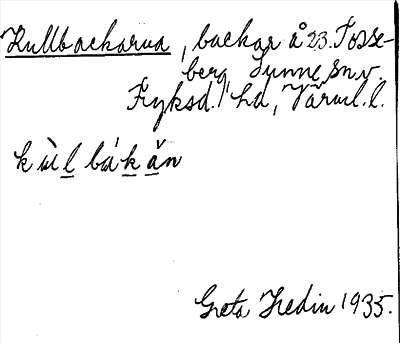 Kullbackarna, backar å 23. Tosse-
berg, Sunne sn v.
Fryksd. hd, Värml. l.
kùl bákăn
Greta Hedin 1935.